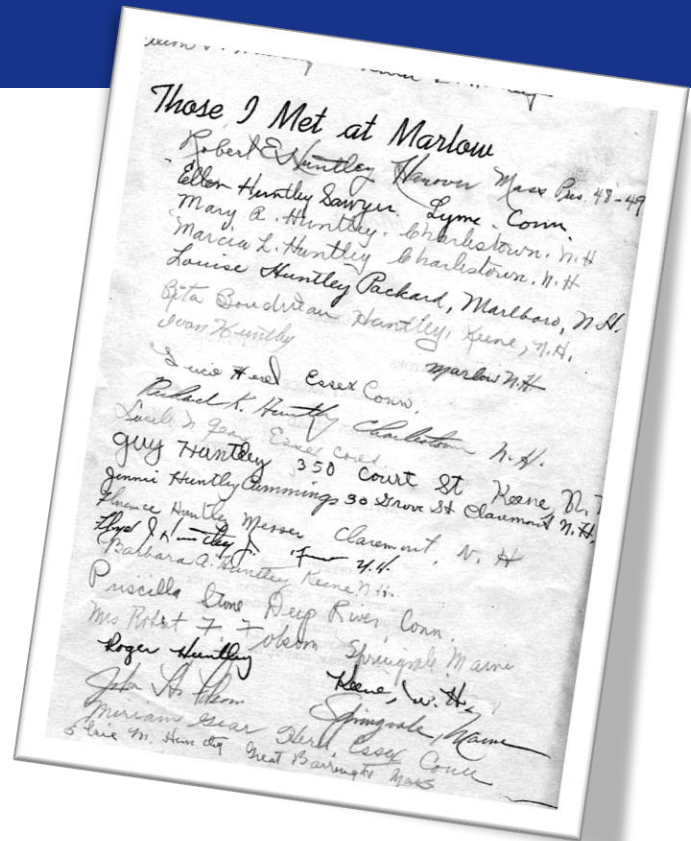 Those I Met at Marlow
Robert E Huntley Hanover Mass Pres. 48-49
Ellen Huntley Sawyer. Lyme. Conn.
Mary A. Huntley. Charlestown. N.H
Marcia L. Huntley Charlestown. N.H
Louise Huntley Packard, Marlboro, N.H.
Rita Boudreau Huntley, Keene, N.H.
Ivan Huntley Marlow N.H
Essex Conn.
Richard K. Huntley Charlestown N.H.
Guy Huntley 350 Court St Keene, N.
Jennie Huntley Cummings 30 Grove St Claremont N.H.
Florence Huntley Messer Claremont, N. H
Floyd J. Huntley Jr.
Barbara A. Huntley Keene N.H.
Priscilla Stone Deep River, Conn.
Mrs Robert F Folsom Springvale Maine
Roger Huntley Keene, N.H.
Folsom Springvale, Maine
Miriam Gear Herel, Essex Conn
M. Huntley Great Barrington Mass